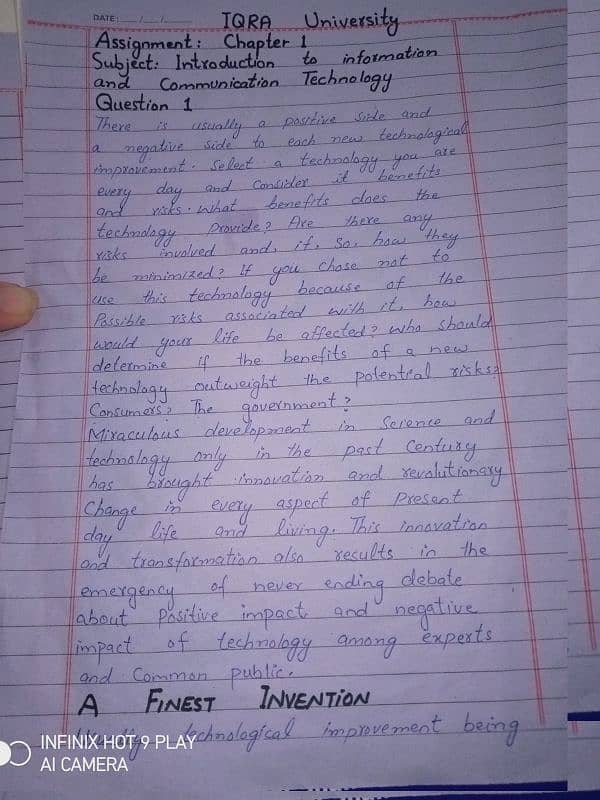 DATE: ___/___/___
IQRA University
Assignment: Chapter 1
Subject: Introduction to information
and Communication Technology
Question 1
There is usually a positive side and
a negative side to each new technological
improvement. Select a technology you are
every day and consider it benefits
and risks. What benefits does the
technology Provide? Are there any
risks involved and, if, so, how they
be minimized? If you chose not to
use this technology because of the
Possible risks associated with it, how
would your life be affected? who should
determine if the benefits of a new
technology outweight the potential risks?
Consumers? The government?
Miraculous development in Science and
technology only in the past Century
has brought innovation and revolutionary
Change in every aspect of Present
day life and living. This innovation
and transformation also results in the
emergency of never ending debate
about Positive impact and negative
impact of technology among experts
and Common public.
A FINEST INVENTION
technological improvement being
INFINIX HOT 9 PLAY
AI CAMERA